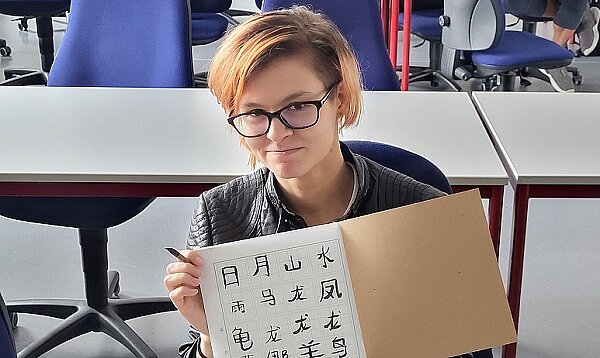 日 月 山 水
雨 马 龙 凤
龟 龙 龙 龙
羊 鸟